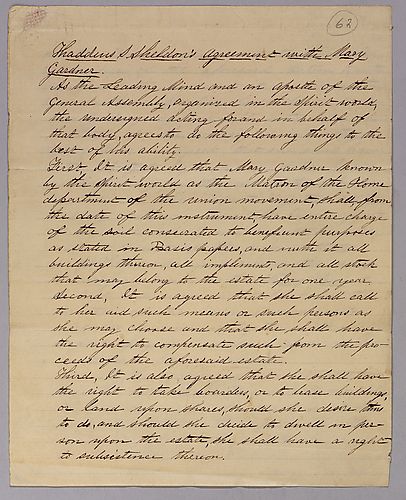 62
Thaddeus S. Sheldon's agreement with Mary
Gardner.
As the Leading Mind and an apostle of the
General Assembly, organized in the Spirit world,
the undersigned acting for and in behalf of
that body, agrees to do the following things to the
best of his ability.
First, It is agreed that Mary Gardner known
by the spirit world as the Matron of the Home
department of the union movement, shall from
the date of this instrument, have entire charge
of the soil consecrated to beneficent purposes
as stated in Basis papers, and with it all
buildings thereon, all implements, and all stock
that may belong to the estate for one year.
Second, It is agreed that she shall call
to her aid such means or such persons as
she may choose and that she shall have
the right to compensate such from the pro-
ceeds of the aforesaid estate.
Third, It is also agreed that she shall have
the right to take boarders, or to lease buildings,
or land upon shares, should she desire thus
to do, and should she decide to dwell in per-
son upon the estate, she shall have a right
to subsistence thereon.